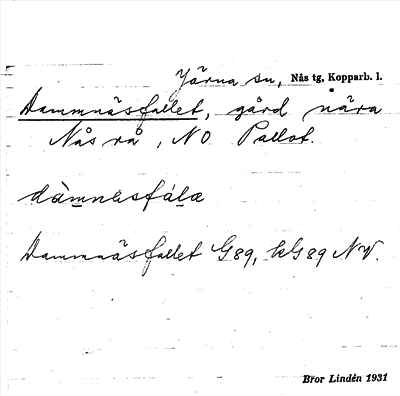 Järna sn, Nås tg, Kopparb. l.
Dammnäsfallet, gård nära
Nås rå, NO Pallot.
dàmnäsfála
Dammnäsfallet G89, kG89 NV.
Bror Lindén 1931